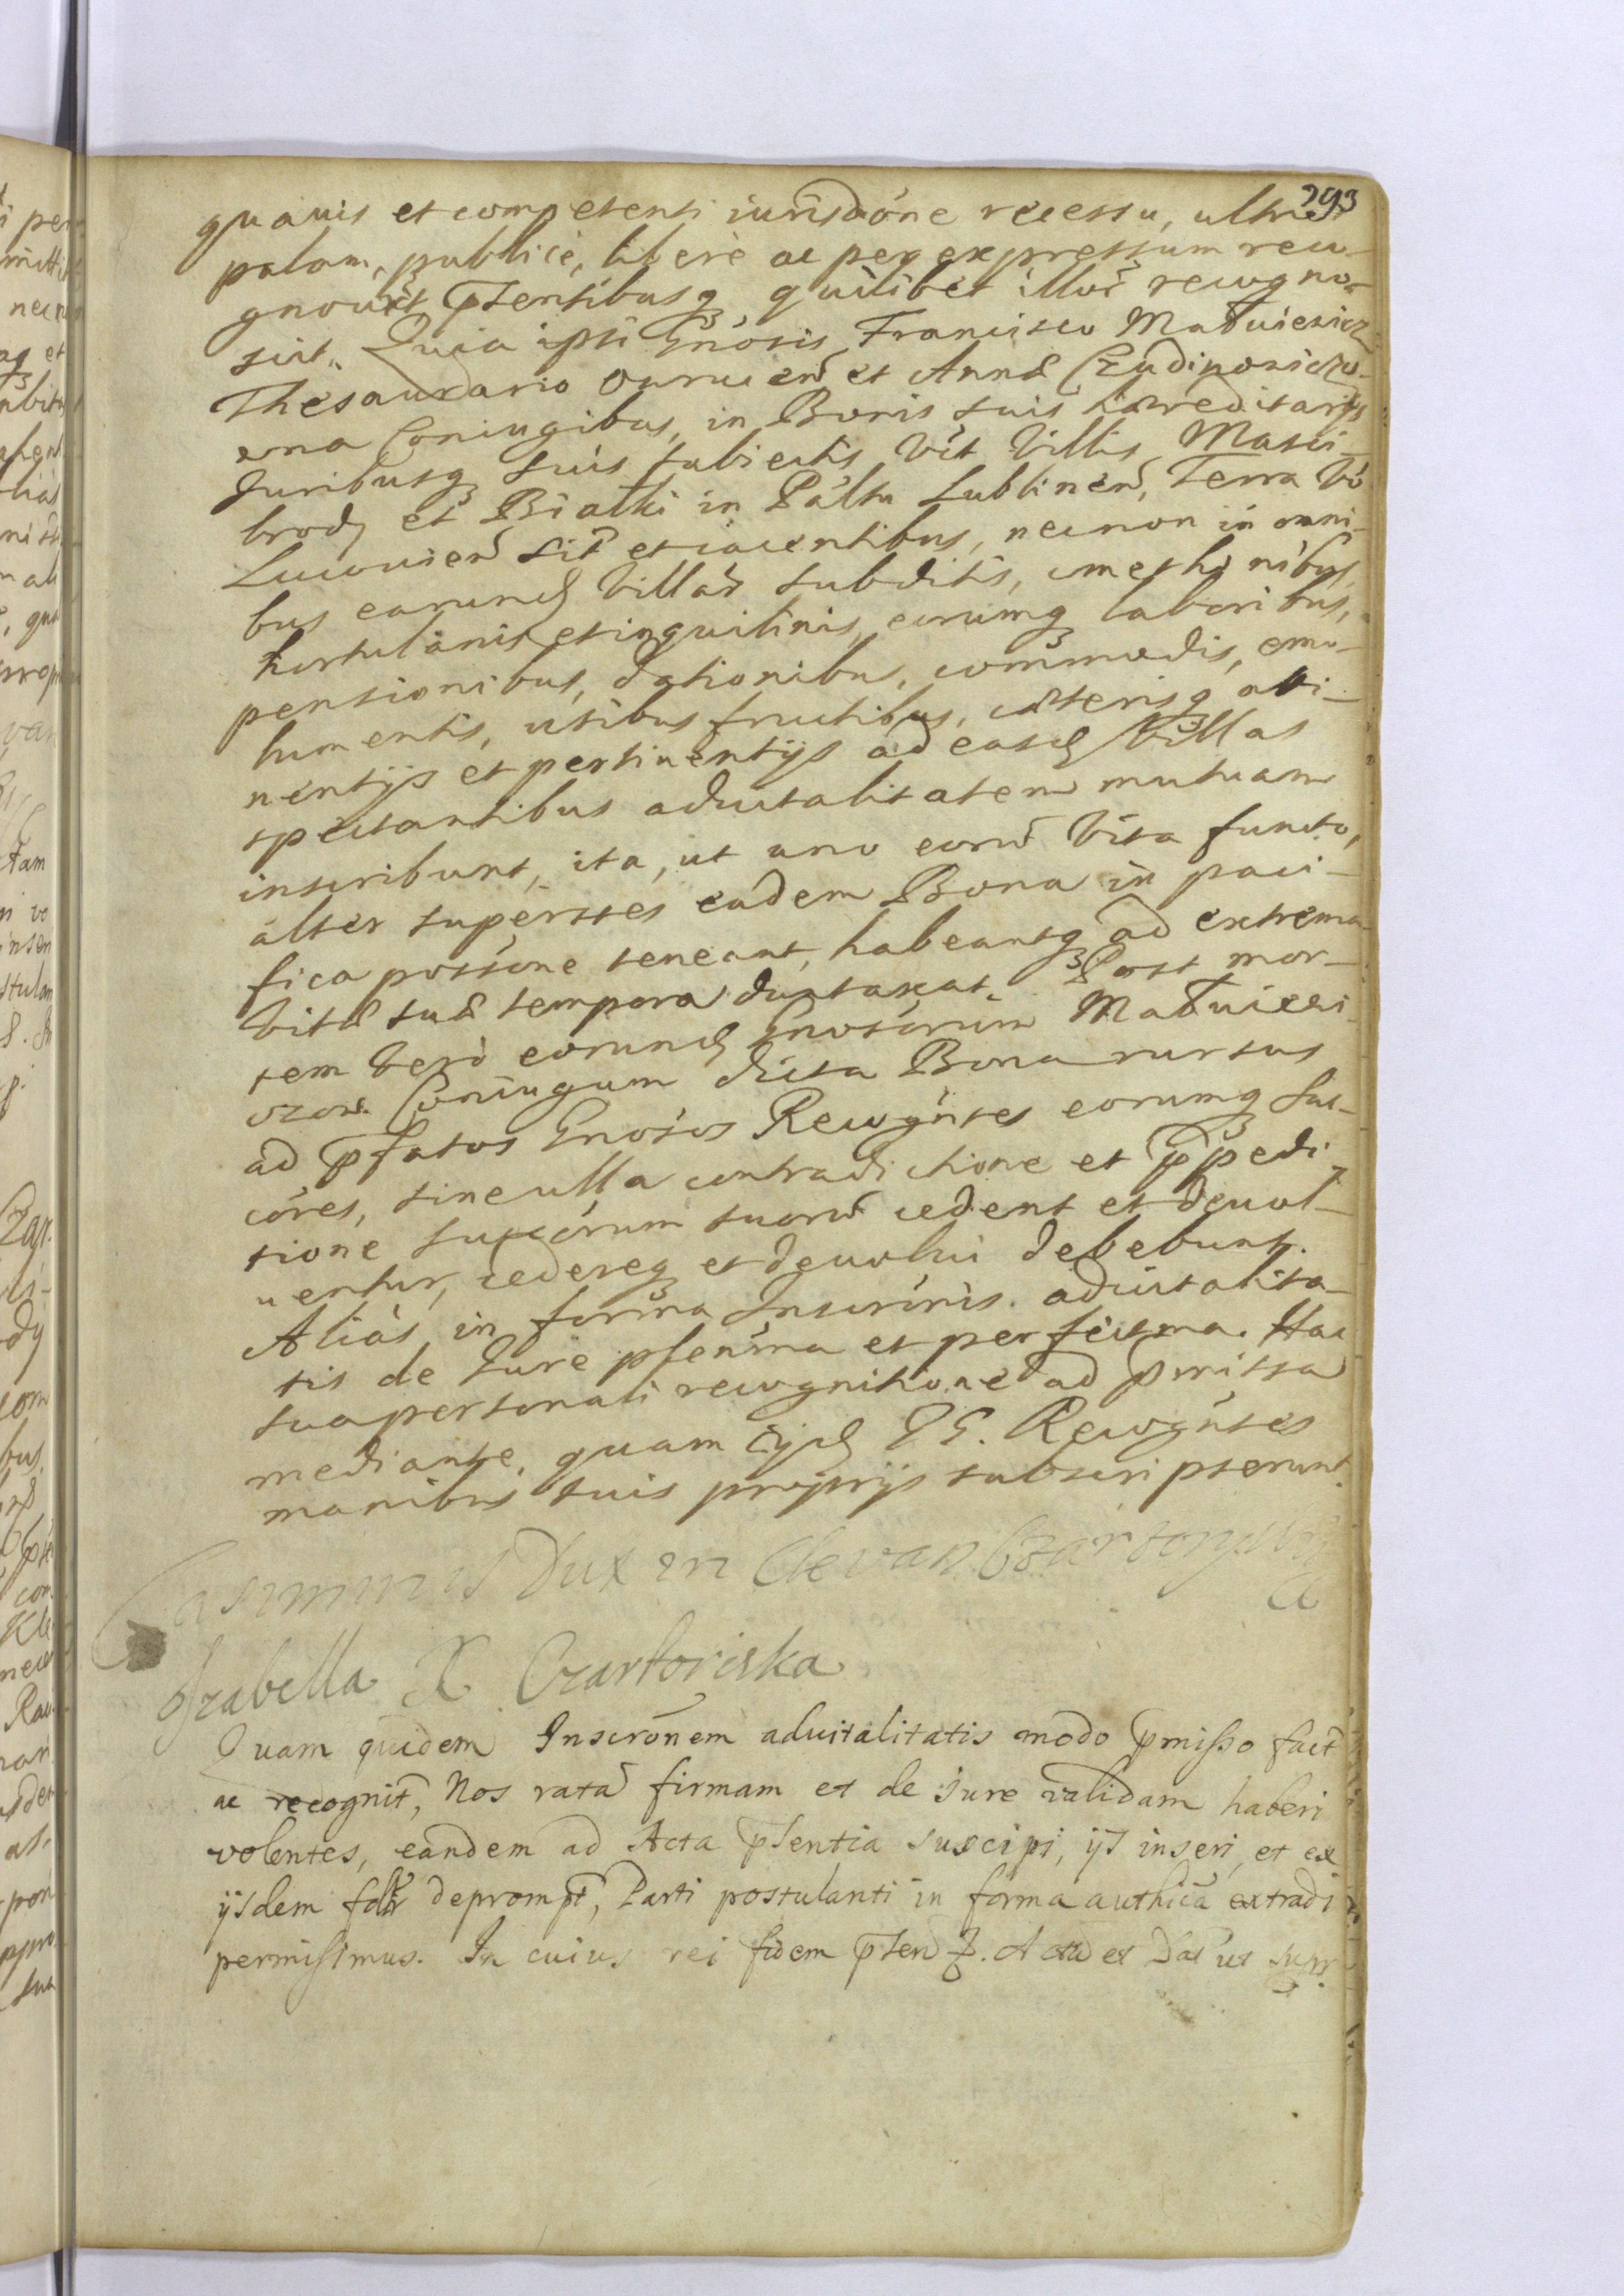 293
quauis et competenti iurisdōne recessu, ultro
palam, publicè, liberè ac per expressum reco-
gnouēt p̄sentibusq quilibet illor̄ recogno-
scit. Quia ipsi Gnosis Francisco Matuiewicz
Thesaurario Ourucen̄ et Annæ
erna Coniugibus, in Bonis suis hæreditarijs
Juribusq suis subiectis vt Villis Masci-
brody et Bialki in Paltu Lublinen̄, Terra vō
Lucouien̄ sit̄ et iacentibus, necnon in omni-
bus earund Villar̄ subditis, cmethonibus,
hortulanis et inquilinis, eorumq laboribus,
pensionibus, dationibus, commodis, emo-
lumentis, usibus fructibus, cæterisq atti-
nentijs et pertinentijs ad easd Villas
spectantibus aduitalitatem mutuam
inscribunt, ita, ut uno eorū vita functo,
alter superstes eadem Bona in paci-
fica possōne teneant, habeantq ad extrema
vitæ suæ tempora duntaxat. Post mor-
tem verò eorund Gnosorum Matuiewi
czow Coniugum dicta Bona rursus
ad p̄fatos Gnosos Recogn̄tes eorumq suc-
cōres, sine ulla contradictione et p̄pedi
tione succōrum suorū cedent et deuol-
uentur, cedereq et deuolui debebunt.
Aliàs in forma Inscrōnis aduitalita-
tis de Jure plenīma et perfectma. Hac
sua personali recognitione ad p̄missa
mediante, quam ijd GG. Recogn̄tes
manibus suis proprijs subscripserunt.
Casimirus Dux in Clevan Czartoryski
Izabella X Czartoriska
Quam quidem Inscrōnem aduitalitatis modo p̄misso fact
ac recognit, Nos ratā firmam et de iure validam haberi
volentes, eandem ad Acta p̄sentia suscipi, ijs inseri, et ex
ijsdem deprompt, Parti postulanti in forma authicā extradi
permisimus. In cuius rei fidem p̄sen Actū et Dat ut supr